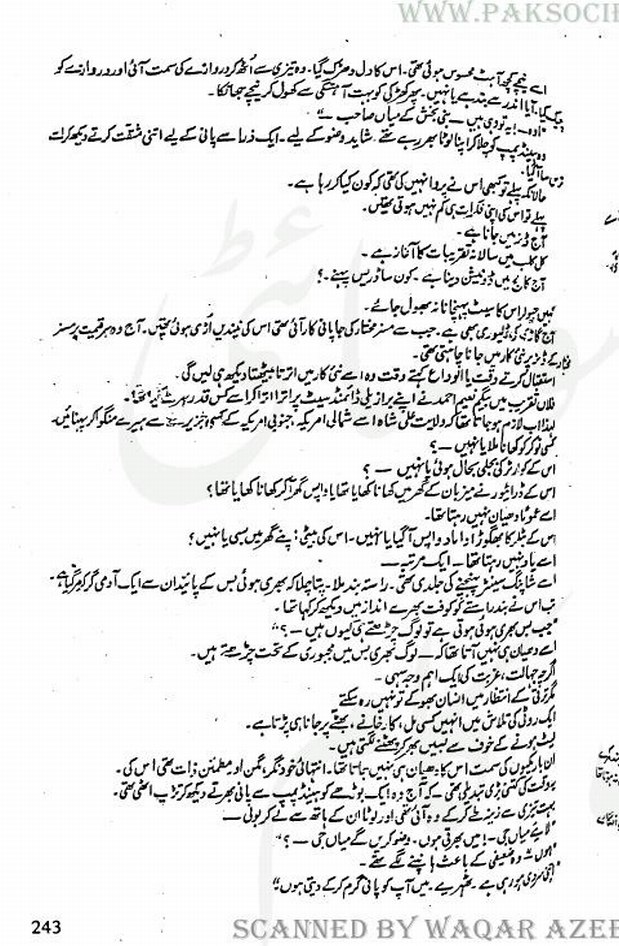 WWW.PAKSOCIE
اسے نیچے کچھ آہٹ محسوس ہوئی تھی۔ اس کا دل دھڑک گیا۔ وہ تیزی سے اُٹھ کر دروازے کی سمت آئی اور دروازے کو
چیک کیا۔ آیا اندر سے بند ہے یا نہیں۔ پھر کھڑکی کو بہت آہستگی سے کھول کر نیچے جھانکا۔
"اوہ۔! یہ تو وہی ہیں — نبی بخش کے میاں صاحب —"
وہ ہینڈ پمپ کو چلا کر اپنا لوٹا بھر رہے تھے۔ شاید وضو کے لیے۔ ایک ذرا سے پانی کے لیے اتنی مشقت کرتے دیکھ کر ات
ترس سا آگیا۔
حالانکہ پہلے تو کبھی اس نے پروا نہیں کی تھی کہ کون کیا کر رہا ہے۔
پہلے تو اس کی اپنی فکرات ہی کم نہیں ہوتی تھیں۔
آج ڈنر میں جانا ہے۔
کل کلب میں سالانہ تقریبات کا آغاز ہے۔
آج کالج میں ڈونیشن دینا ہے۔ کون سا ڈریس پہنے۔؟
کہیں جیولر اس کا سیٹ پہنچانا نہ بھول جائے۔
آج گاڑی کی ڈلیوری بھی ہے۔ جب سے مسز مختار کی جاپانی کار آئی تھی اس کی نیندیں اُڑی ہوئی تھیں۔ آج وہ ہر قیمت پر مسز
مختار کے ڈنر پر نئی کار میں جانا چاہتی تھی۔
استقبال کرتے وقت یا الوداع کہتے وقت وہ اسے نئی کار میں اترتا بیٹھتا دیکھ ہی لیں گی۔
فلاں تقریب میں بیگم نعیم احمد نے اپنے برازیلی ڈائمنڈ سیٹ پر اترا اترا کر اسے کس قدر
لہٰذا اب لازم ہو جاتا تھا کہ ولایت علی شاہ اسے شمالی امریکہ، جنوبی امریکہ کے کسی جزیرے سے ہیرے منگوا کر پہنائیں۔
کسی نوکر کو کھانا ملا یا نہیں —؟
اس کے کوارٹر کی بجلی بحال ہوئی یا نہیں — ؟
اس کے ڈرائیور نے میزبان کے گھر میں کھانا کھایا تھا یا واپس گھر آ کر کھانا کھایا تھا؟
اسے عموماً دھیان نہیں رہتا تھا۔
اس کے بٹلر کا بھگوڑا داماد واپس آ گیا یا نہیں۔ اس کی بیٹی؛ اپنے گھر میں بسی یا نہیں؟
اسے یاد نہیں رہتا تھا۔ ایک مرتبہ —
اسے شاپنگ سینٹر پہنچنے کی جلدی تھی۔ راستہ بند ملا۔ پتا چلا کہ بھری ہوئی بس کے پائیدان سے ایک آدمی گر کر مر گیا ہے۔
تب اس نے بند راستے کو کوفت بھرے انداز میں دیکھ کر کہا تھا۔
"جب بس بھری ہوئی ہوتی ہے تو لوگ چڑھتے ہی کیوں ہیں — ؟"
اسے دھیان ہی نہیں آتا تھا کہ — لوگ بھری بس میں مجبوری کے تحت چڑھتے ہیں۔
اگرچہ جہالت، غربت کی ایک اہم وجہ سہی —
مگر ترقی کے انتظار میں انسان بھوکے تو نہیں رہ سکتے
ایک روٹی کی تلاش میں انہیں کسی مل، کارخانے، بھٹے پر جانا ہی پڑتا ہے۔
لیٹ ہونے کے خوف سے بسیں بھر کر چلنے لگتی ہیں۔
ان باریکیوں کی سمت اس کا دھیان ہی نہیں جاتا تھا۔ انتہائی خود نگر، مگن اور مطمئن ذات تھی اس کی۔
یہ وقت کی کتنی بڑی تبدیلی تھی — کہ آج وہ ایک بوڑھے کو ہینڈ پمپ سے پانی بھرتے دیکھ کر تڑپ اٹھی تھی۔
بہت تیزی سے زینہ طے کر کے وہ آئی تھی اور لوٹا ان کے ہاتھ سے لے کر بولی —
"لائیے میاں جی۔! میں بھرتی ہوں۔ وضو کریں گے میاں جی — ؟"
"ہوں" وہ ضعیفی کے باعث ہانپنے لگے تھے۔
"اتنی سردی ہو رہی ہے۔ ٹھہریے۔ میں آپ کو پانی گرم کر کے دیتی ہوں"
243
SCANNED BY WAQAR AZEE